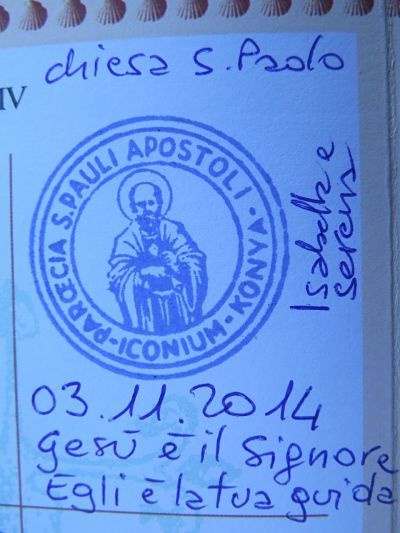 IV
chiesa S. Paolo
PARŒCIA S. PAULI APOSTOLI · ICONIUM - KONYA ·
Isabella e
Serena
03.11.2014
gesù è il Signore
Egli è la tua guida